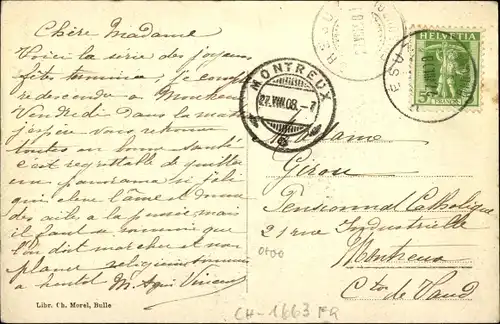 Chère Madame
Voici la série des joyeuses
fêtes terminée; je compte
redescendre à Montreux
Vendredi dans la matinée
j'espère vous retrouver
toutes en bonne santé
c'est regrettable de quitter
un panorama si joli
qui élève l'âme et donne
des ailes à la pensée mais
il faut se souvenir que
l'on doit marcher et non
planer
à bientôt M. Agni Vincent
Libr. Ch. Morel, Bulle
HELVETIA
5 FRANCO 5
MONTREUX
27.VIII.08.-7
Madame
Girou
Pensionnat Catholique
21 rue Industrielle
Montreux
Cton de Vaud
CH-1663 FR